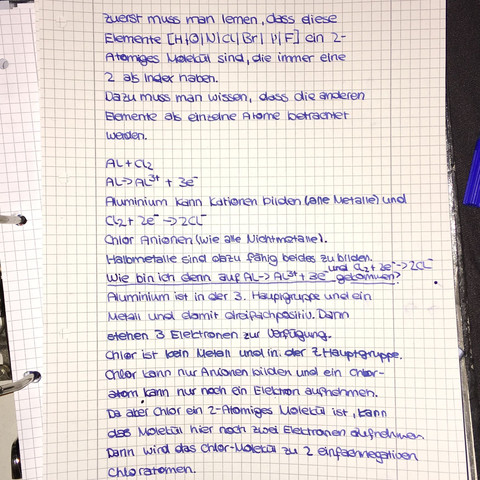 zuerst muss man lernen, dass diese
Elemente [H|O|N|Cl|Br|I|F] ein 2-
Atomiges Molekül sind, die immer eine
2 als Index haben.
Dazu muss man wissen, dass die anderen
Elemente als einzelne Atome betrachtet
werden.
Al + Cl₂
Al -> Al³⁺ + 3e⁻
Aluminium kann Kationen bilden (alle Metalle) und
Cl₂ + 2e⁻ -> 2Cl⁻
Chlor Anionen (wie alle Nichtmetalle).
Halbmetalle sind dazu fähig beides zu bilden.
und Cl₂ + 2e⁻ -> 2Cl⁻
Wie bin ich denn auf Al -> Al³⁺ + 3e⁻ gekommen?
Aluminium ist in der 3. Hauptgruppe und ein
Metall und damit dreifachpositiv. Dann
stehen 3 Elektronen zur Verfügung.
Chlor ist kein Metall und in der 7 Hauptgruppe.
Chlor kann nur Anionen bilden und ein Chlor-
atom kann nur noch ein Elektron aufnehmen.
Da aber Chlor ein 2-Atomiges Molekül ist, kann
das Molekül hier noch zwei Elektronen aufnehmen.
Dann wird das Chlor-Molekül zu 2 einfachnegativen
Chloratomen.